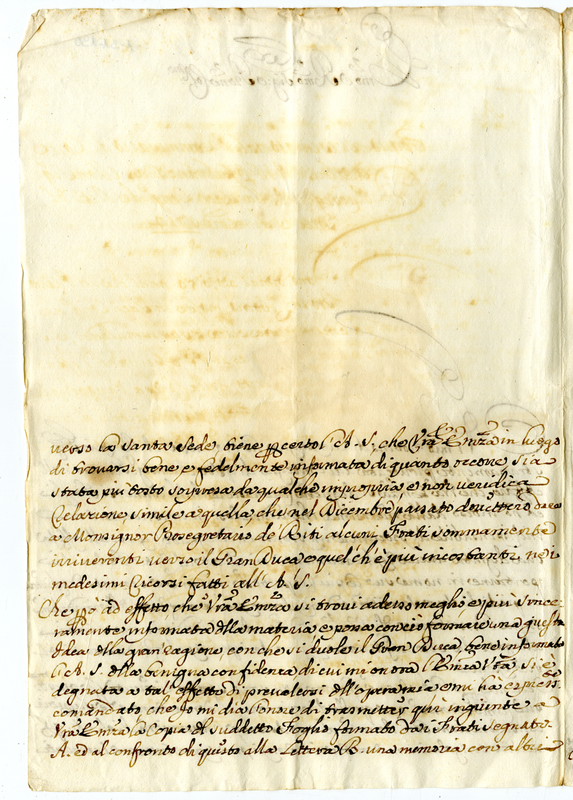 verso la Santa Sede tiene p certo l'A. S. che Vra Emza in luogo
di trovarsi bene, e fedelmente informata di quanto occorre sia
stata più tosto sorpresa da qualche impropria e non veridica
Relazione, simile a quella che nel Dicembre passato
a Monsignor Prosegretario de Riti alcuni Frati sommamente
irriverenti verso il Gran Duca e quel ch'è più incostanti nei
medesimi Ricorsi fatti all'A. S.
Che p ciò ad effetto che Vra Emza si trovi adesso meglio e più since-
ramente informata della materia e possa con ciò formare una giusta
Idea della gran ragione, con che si duole il Gran Duca, bene informato
l'A. S. della benigna confidenza di cui mi onora l'Emza Vra si è
degnata a tal'effetto di prevalersi dell'opera mia e mi hà espress.
comandato che Io mi dia l'onore di trasmetter qui ingiunte a
Vra Emza la Copia del suddetto Foglio formato dai Frati segnato
A. ed al confronto di questo alla Lettera B. una memoria con altri